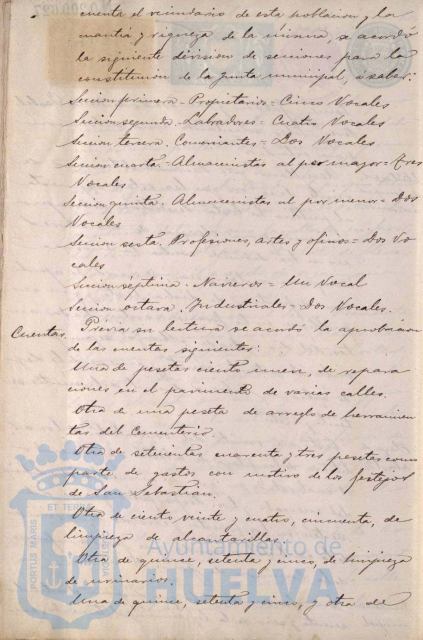 cuenta el vecindario de esta poblacion y la
cuantía y riqueza de la misma, se acordó
la siguiente division de secciones para la
constitucion de la Junta municipal, á saber:
Seccion primera. Propietarios = Cinco Vocales
Seccion segunda. Labradores = Cuatro Vocales
Seccion tercera. Comerciantes = Dos Vocales
Seccion cuarta. Almacenistas al por mayor = Tres
Vocales
Seccion quinta. Almacenistas al por menor = Dos
Vocales
Seccion sesta. Profesiones, artes y oficios = Dos Vo
cales
Seccion séptima. Navieros = Un Vocal
Seccion octava. Industriales = Dos Vocales.
Cuentas. Prévia su lectura se acordó la aprobacion
de las cuentas siguientes:
Una de pesetas ciento nueve, de repara
ciones en el pavimento de varias calles.
Otra de una peseta de arreglo de herramien
tas del Cementerio
Otra de setecientas cuarenta y tres pesetas como
parte de gastos con motivo de los festejos
de San Sebastián.
Otra de ciento veinte y cuatro, cincuenta, de
limpieza de alcantarillas.
Otra de quince, setenta y cinco, de limpieza
de urinarios.
Una de quince, setenta y cinco, y otra de
PORTUS MARIS ET TERRAE
Ayuntamiento de
HUELVA